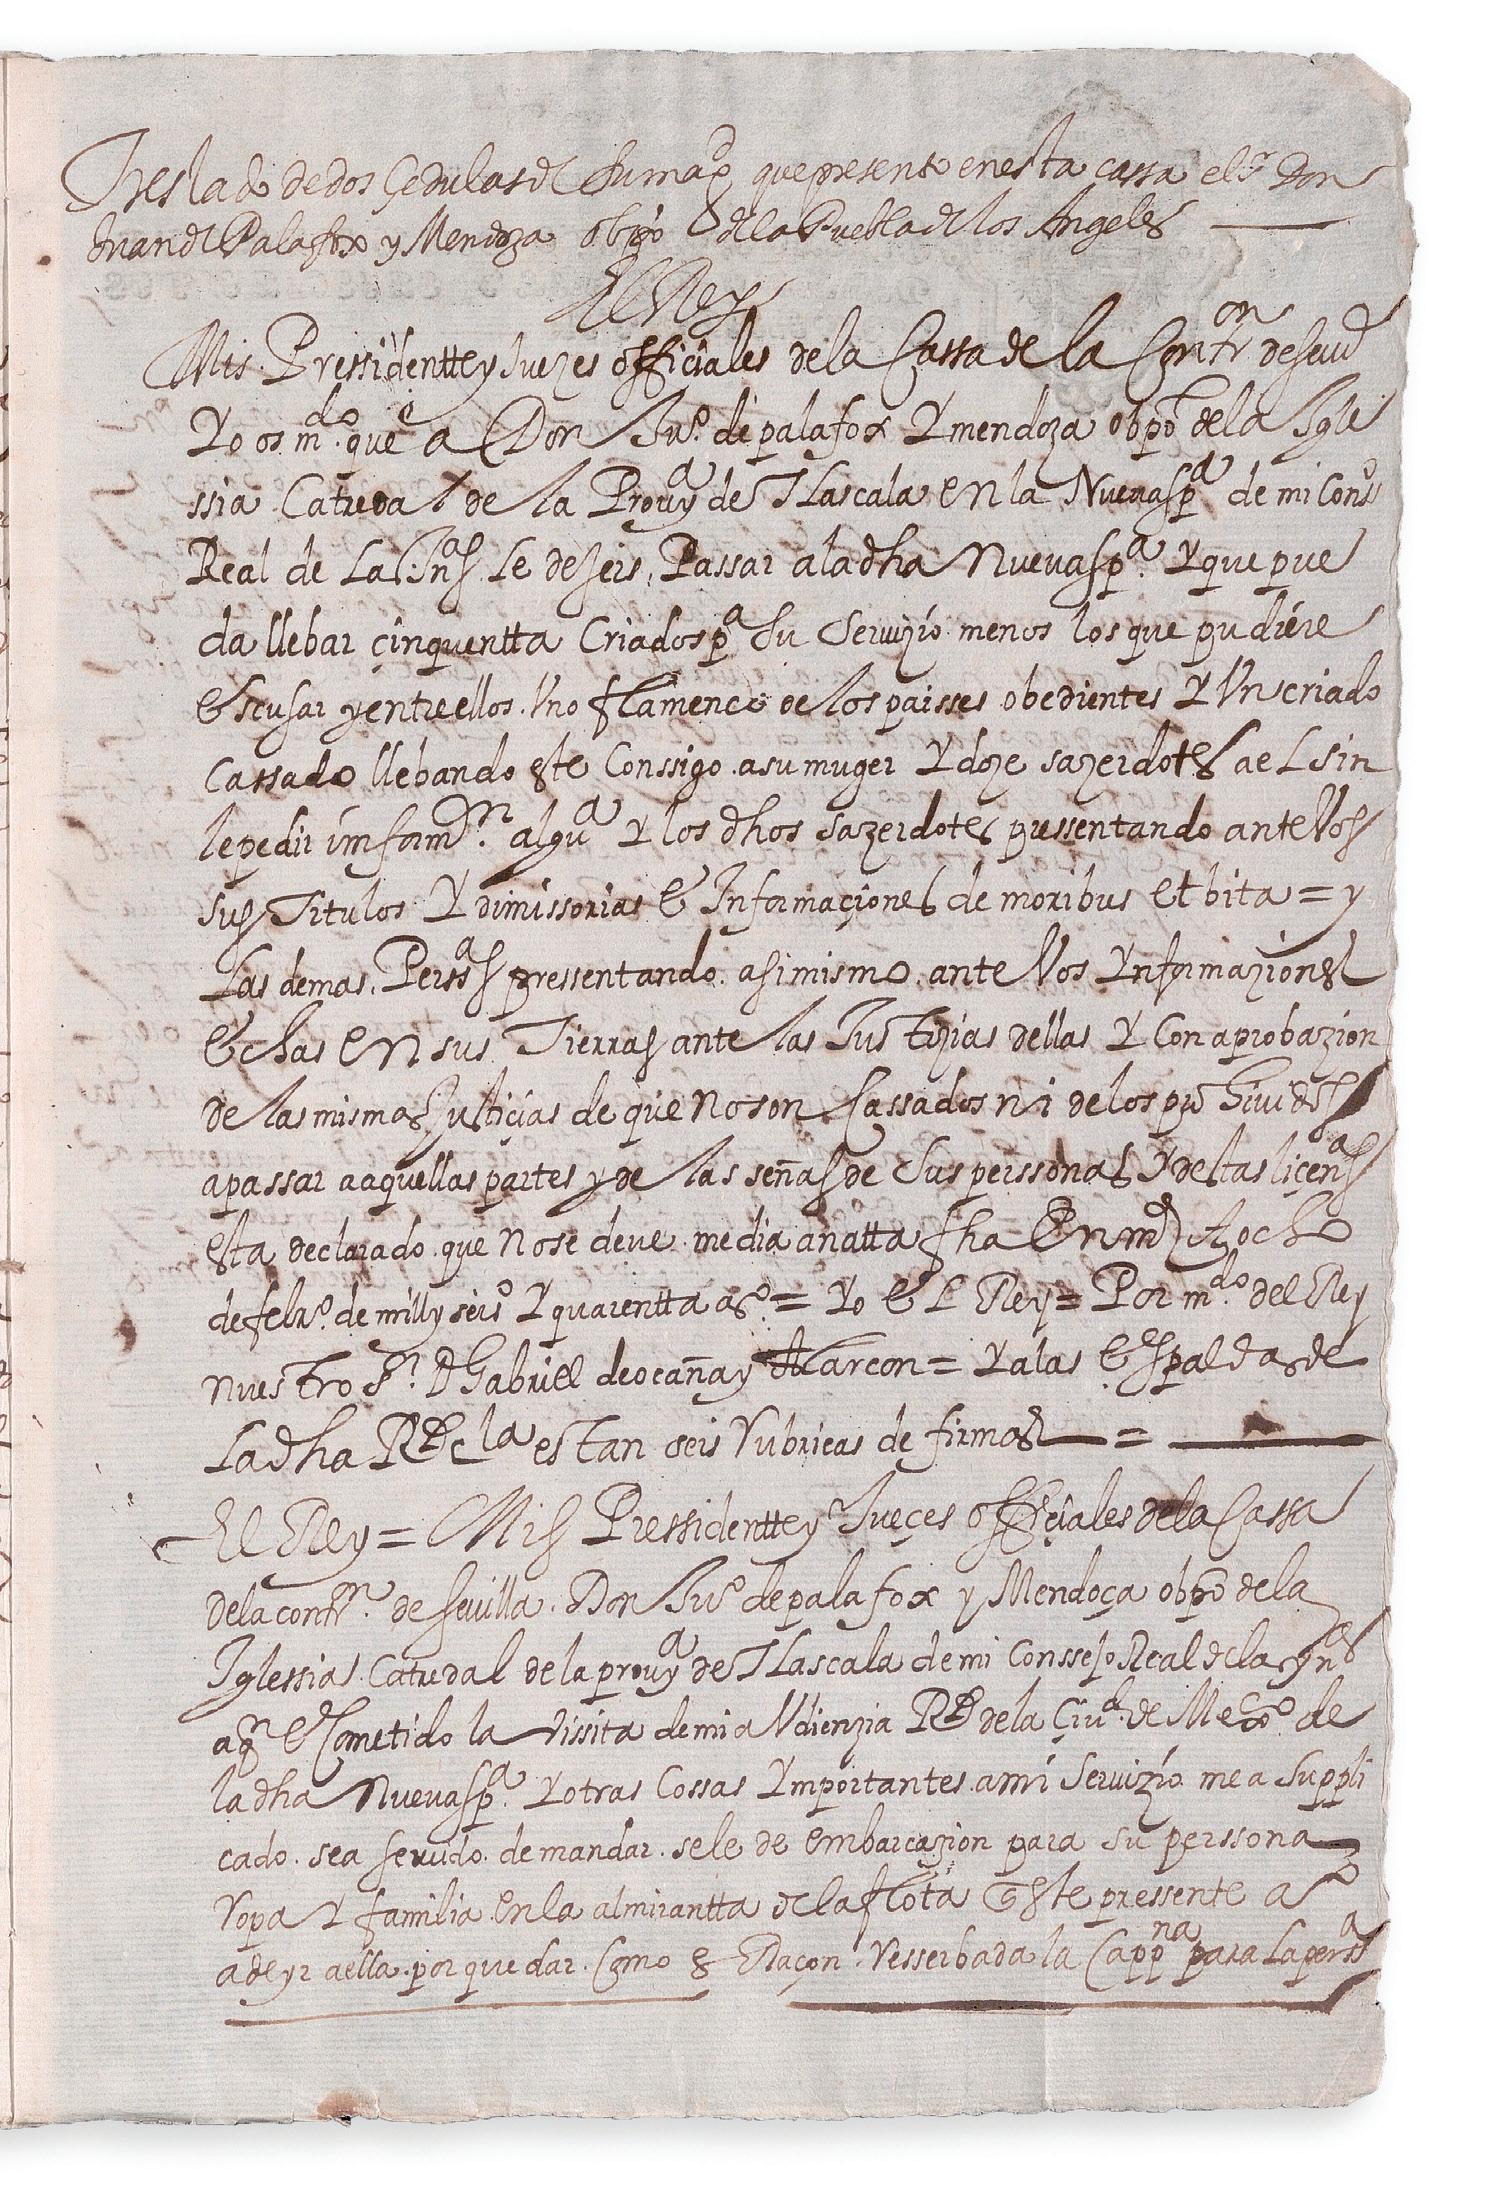 Treslado de dos Çedulas de Su magd que presento en esta cassa el sr Don
Juan de Palafox y Mendoza obpo de la Puebla de los Angeles
El Rey
Mis Pressidentte y Juezes officiales de la Cassa de la Contron de sevd
Yo os mdo que a Don Juo de palafox Y mendoza obpo de la Ygle
ssia Catredal de la Prouya de Tlascala en la Nueuaspa de mi Conso
Real de Las Inas Le dejeis Passar a la dha Nueuaspa Y que pue
da llebar çinquentta Criados pa su seruizio menos los que pudiere
escusar y entre ellos Uno flamenco de los paisses obedientes Y Un criado
Cassado llebando este Conssigo a su muger Y doze sazerdotes a el sin
le pedir imformn algua Y los dhos sazerdotes pressentando ante Vos
sus Titulos Y dimissorias e Informaçiones de moribus et bita = y
Las demas Perssas pressentando asimismo ante Vos Ynformaziones
echas en sus Tierras ante las Justizias dellas Y Con aprobazion
de las mismas Justiçias de que no son Cassados ni de los prohiuidos
a passar a aquellas partes y de las señas de sus perssonas Y destas liçenas
esta declarado que no se deve media anatta fha En md A ocho
de febro de mill y seiso Y quarentta as = Yo el Rey = Por mdo del Rey
nuestro sr D Gabriel de ocaña y Alarcon = Y a las espaldas de
La dha Rl Cla estan seis Rubricas de firmas =
El Rey = Mis Pressidentte y Jueçes offiçiales de la Cassa
de la contron de seuilla Don Juo de palafox y Mendoça obpo de la
Iglessia Catredal de la prouya de Tlascala de mi Conssejo Real de las Ynas
a qn e Cometido la vissita de mi aUdienzia Rl de la Çiud de Mexco de
la dha Nueuaspa Y otras Cossas Ymportantes a mi seruizio me a suppli
cado sea seruido de mandar se le de embarcazion para su perssona
ropa Y familia en la almirantta de la flota q este pressente año
a de yr a ella por quedar Como es Raçon Resserbada la Cappna para la perssa